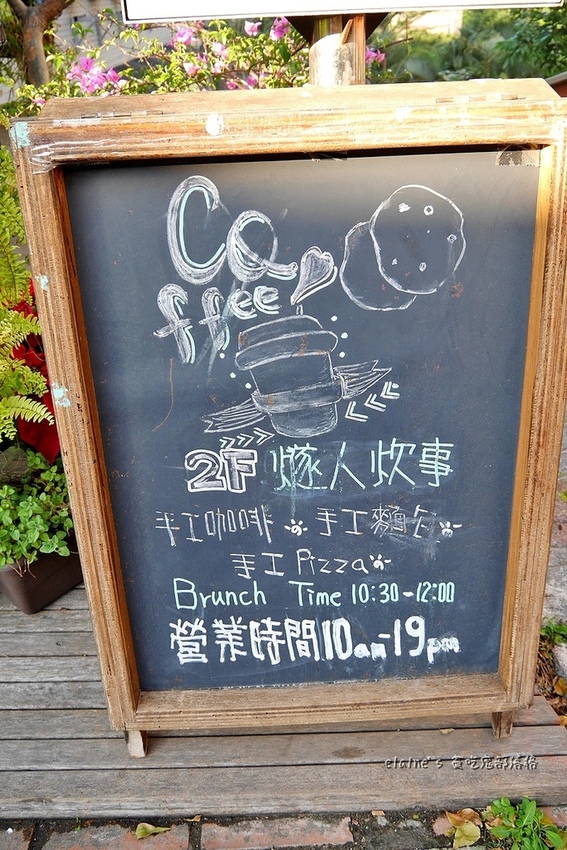 Coffee
2F 燧人炊事
手工咖啡 手工麵包
手工Pizza
Brunch Time 10:30-12:00
營業時間10am-19pm
elaine's 貪吃鬼部落格